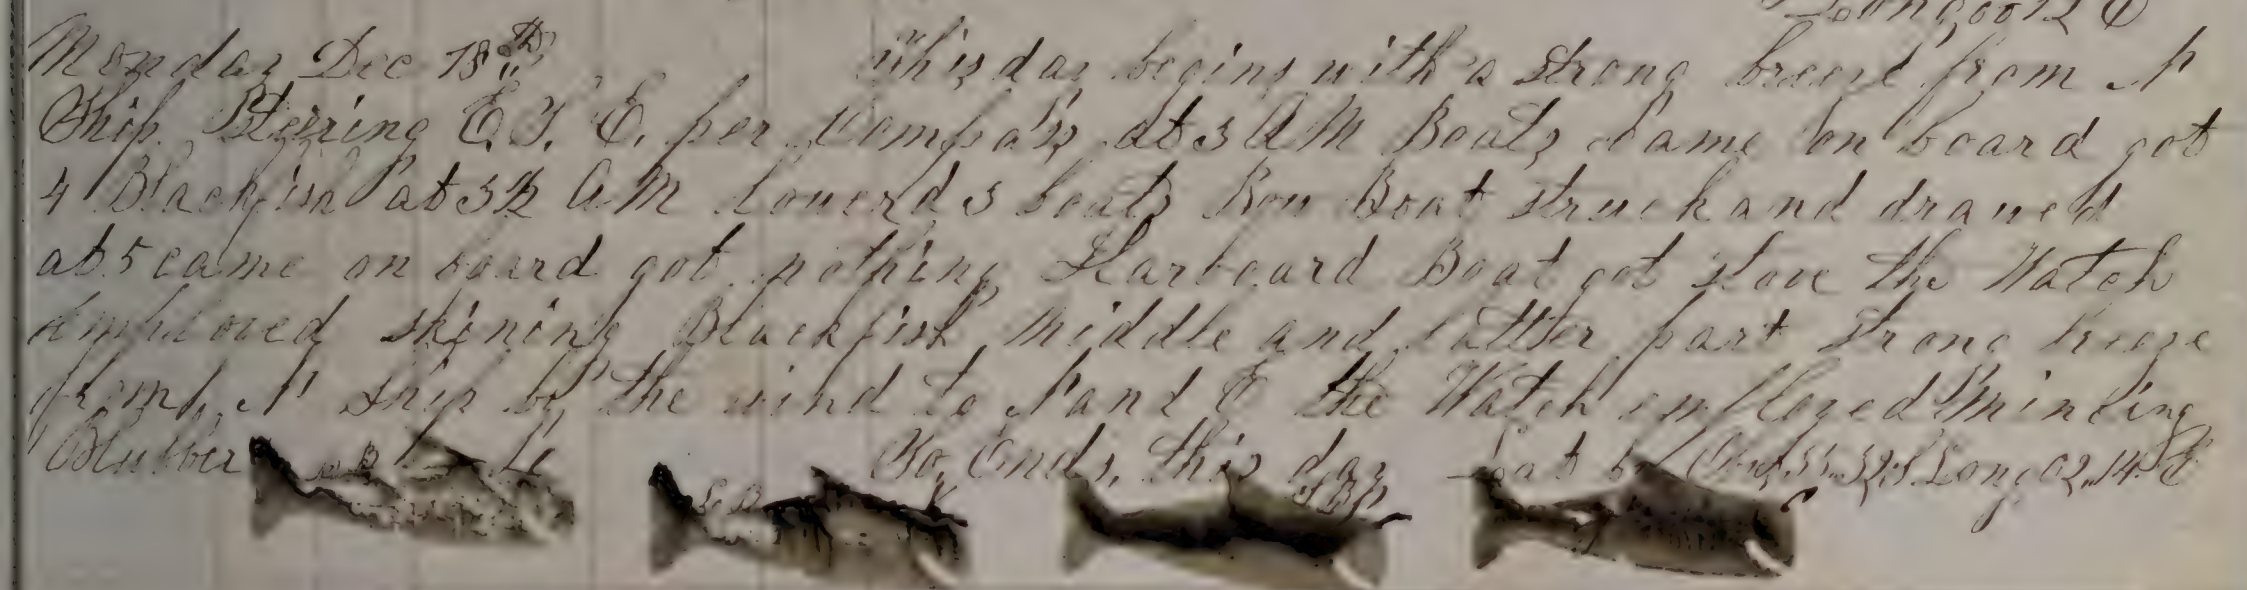 Long 00 12 E
Monday Dec 18th This day begins with a strong breeze from N
Ship Steering E. S. E. per Compas, at 3 AM Boats Came on board got
4 Blackfish at 3½ AM lowerd 3 boats Bow Boat struck and drawed
at 5 came on board got nothing Starboard Boat got stove the Watch
employed skining Blackfish Middle and latter part strong breeze
from N ship by the wind to N and E the Watch employed Mincing
Blubber So Ends, this day Lat by Long 02,14 E